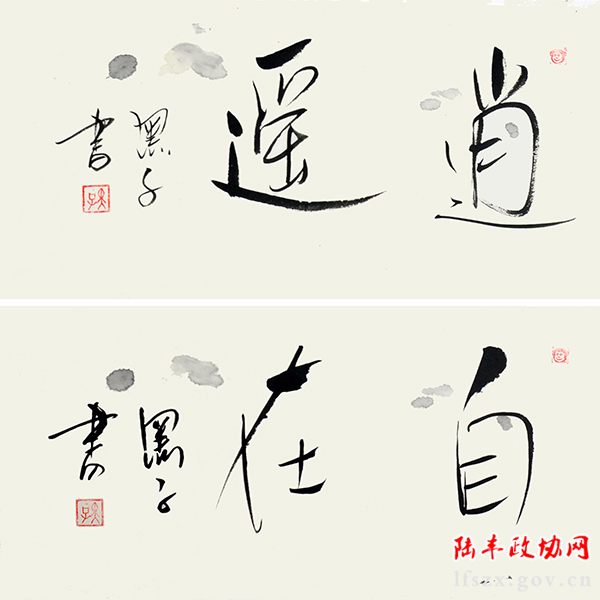 逍遥
黑子
書
自在
黑子
書
陆丰政协网
lfszx.gov.cn